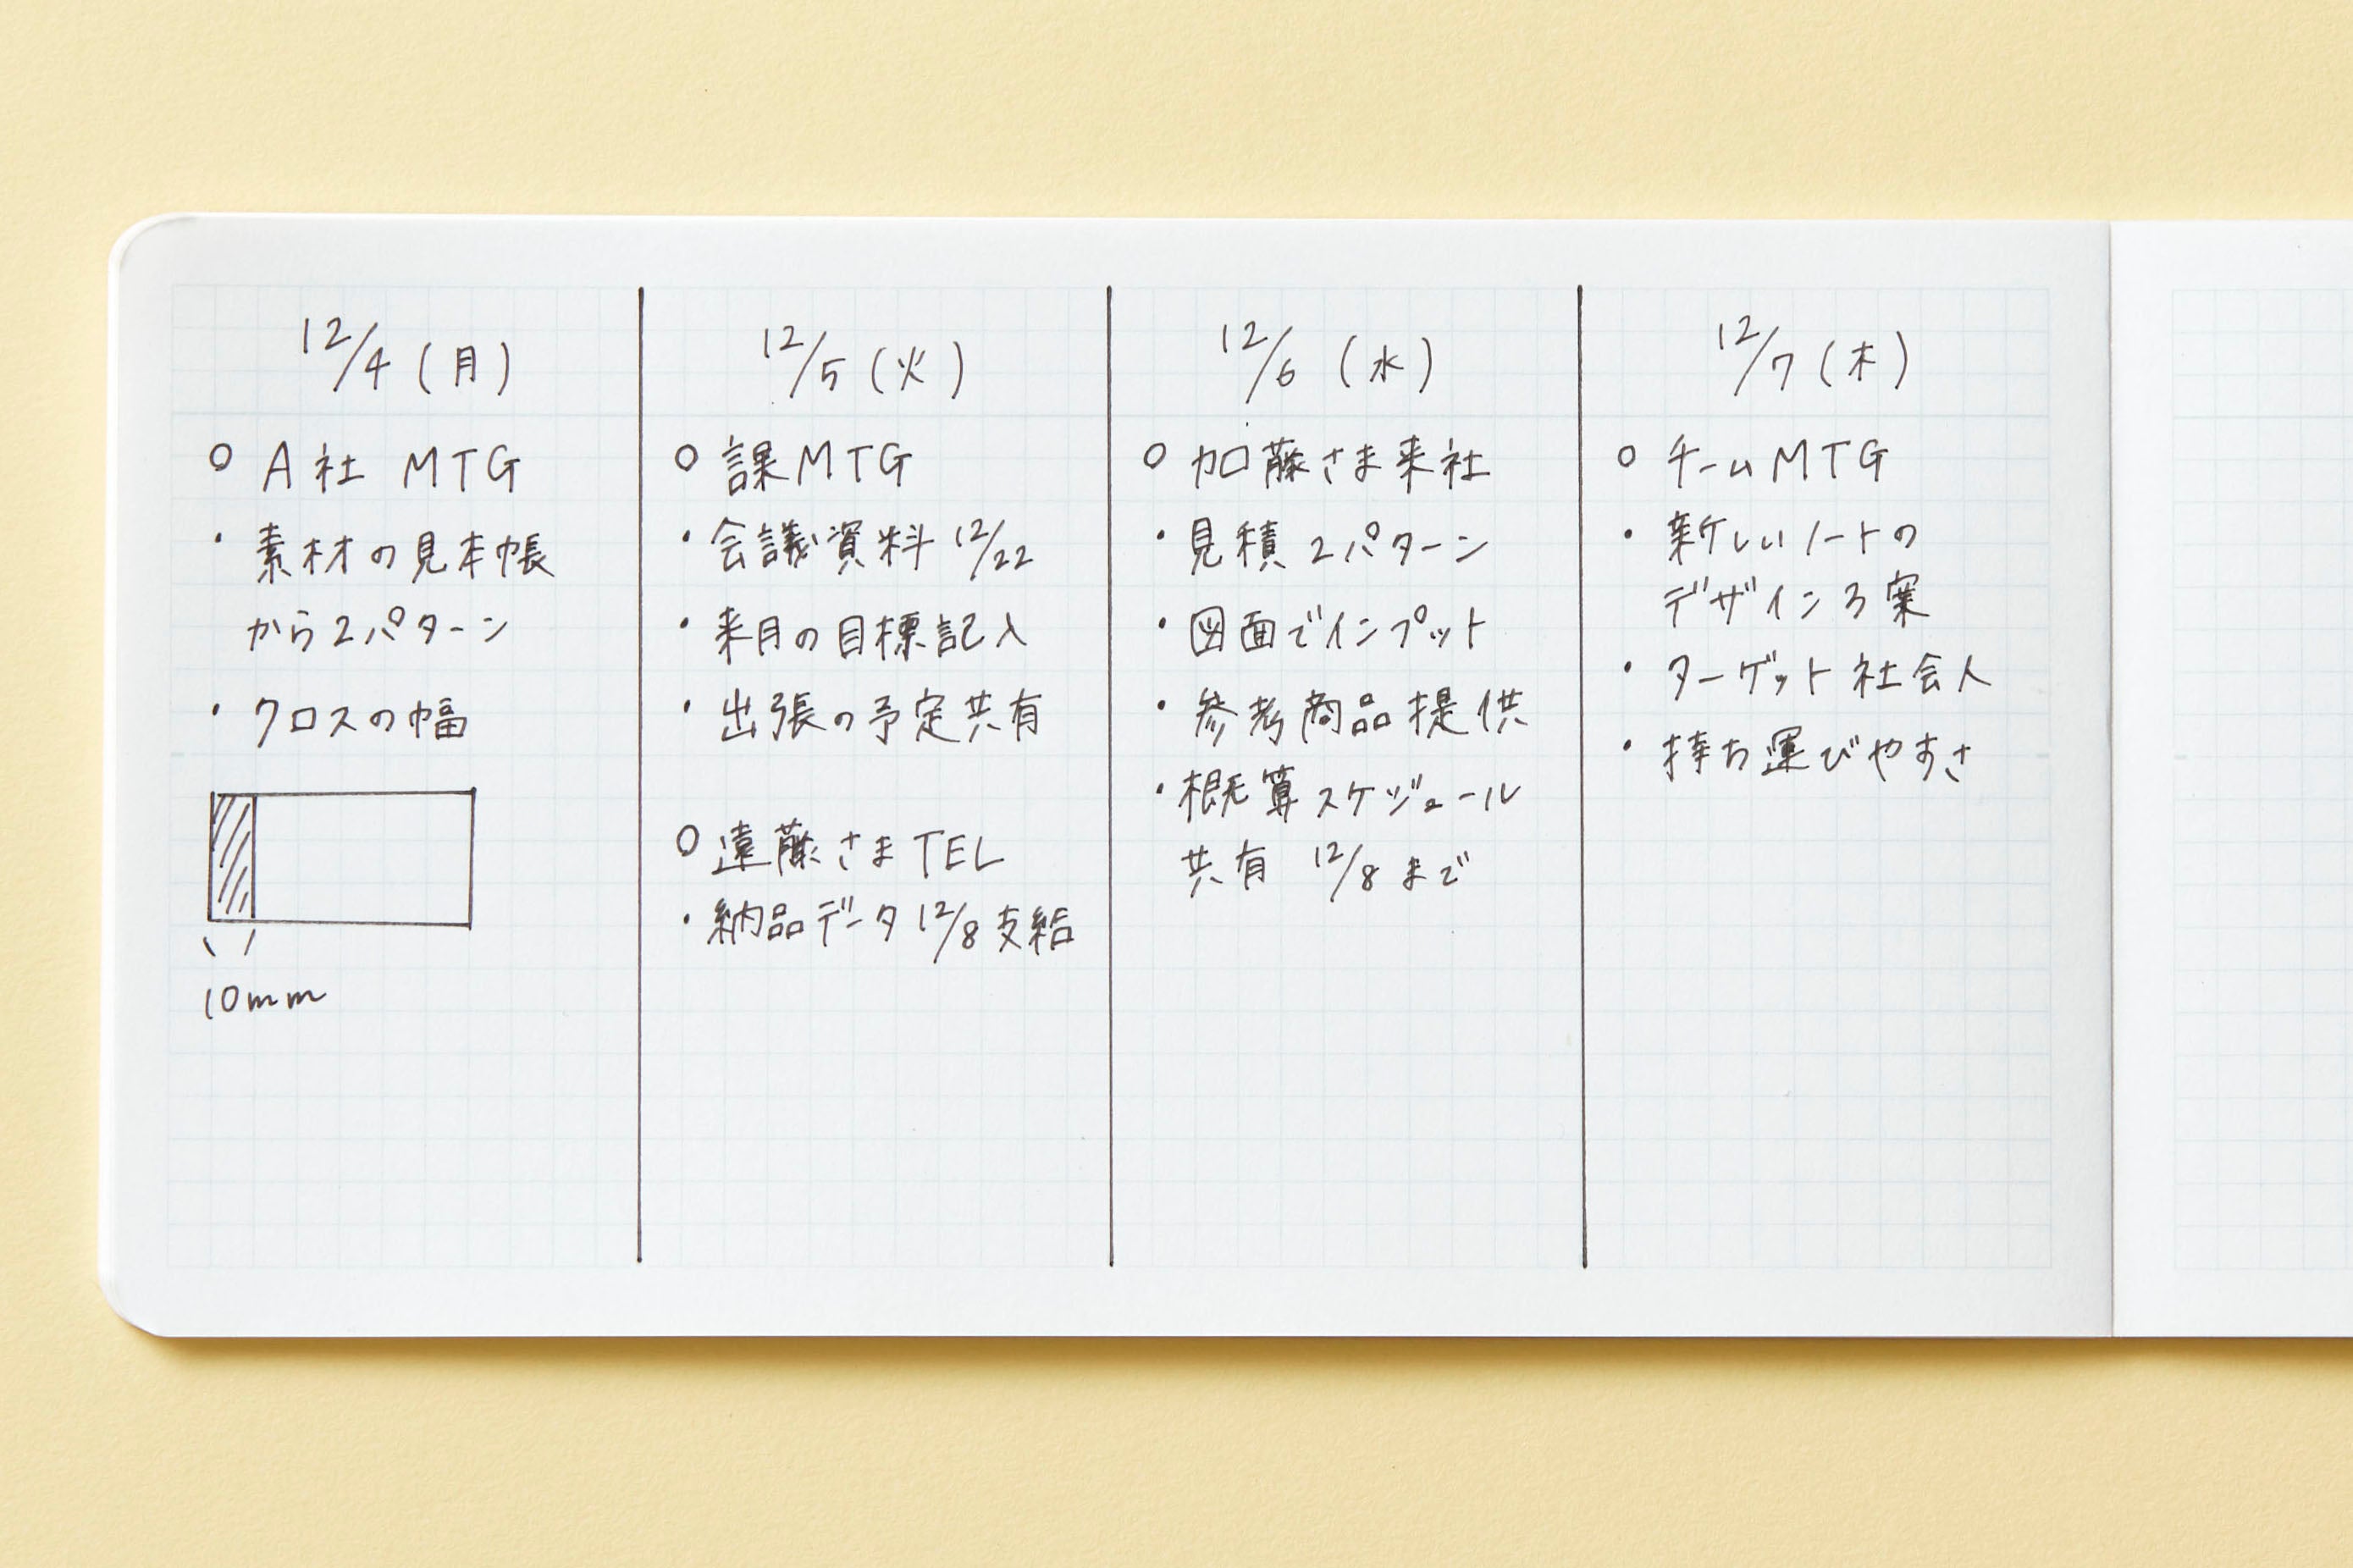 12/4(月)
○ A社 MTG
・素材の見本帳
から2パターン
・クロスの幅
10mm
12/5(火)
○ 課MTG
・会議資料 12/22
・来月の目標記入
・出張の予定共有
○ 遠藤さまTEL
・納品データ 12/8 支給
12/6(水)
○ 加藤さま来社
・見積 2パターン
・図面でインプット
・参考商品提供
・概算スケジュール
共有 12/8 まで
12/7(木)
○ チームMTG
・新しいノートの
デザイン3案
・ターゲット 社会人
・持ち運びやすさ